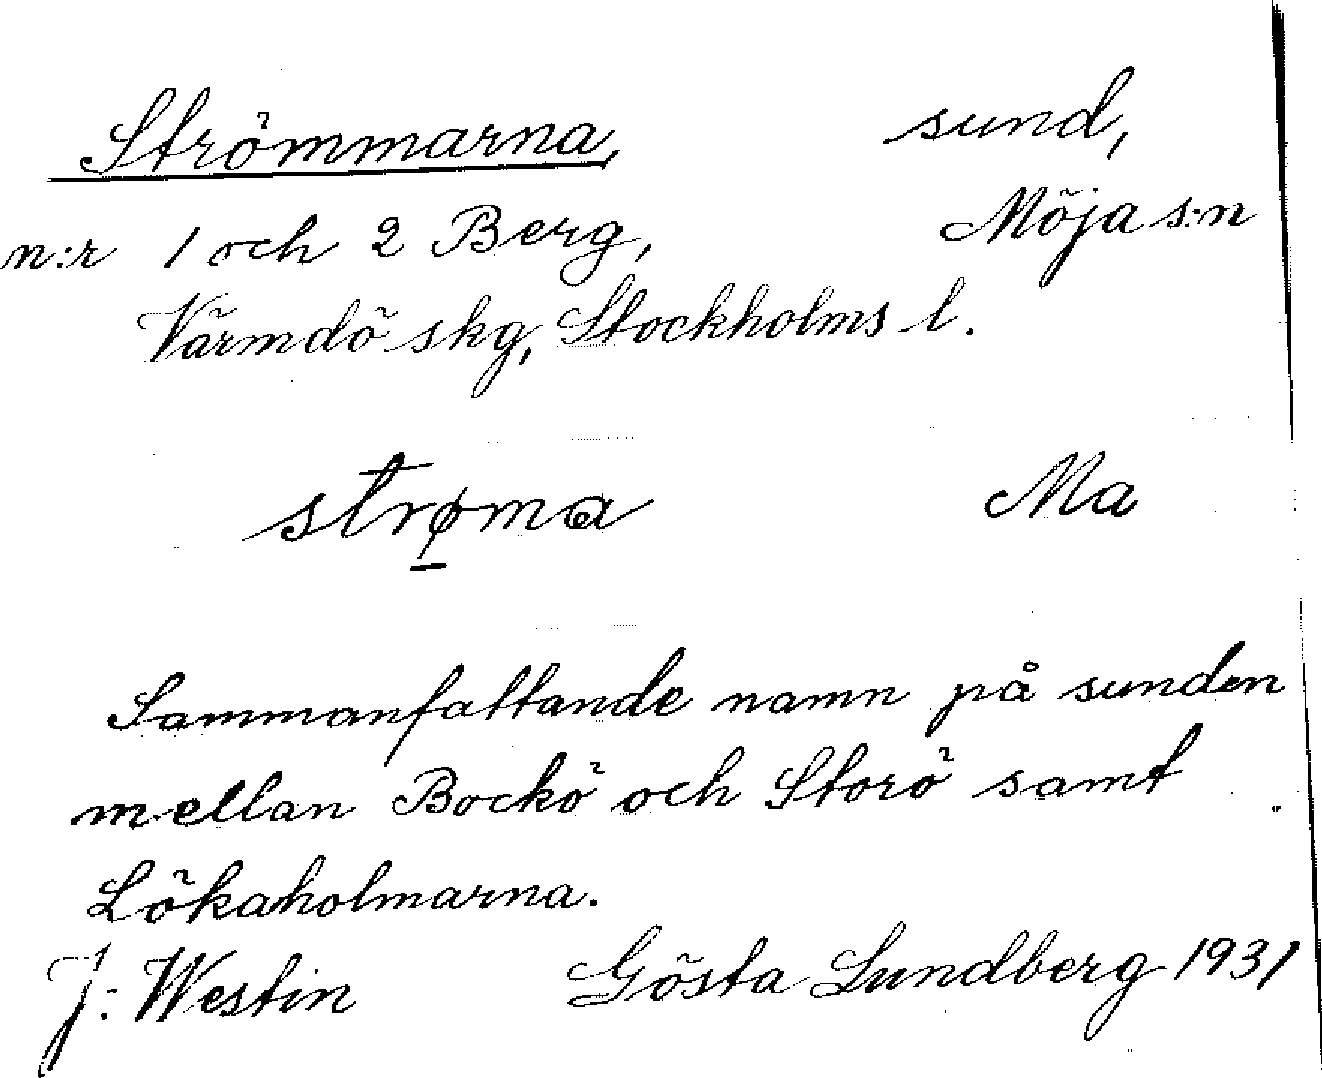 Strömmarna, sund,
n:r 1 och 2 Berg, Möja s:n
Värmdö skg, Stockholms l.
strø̱ma Ma
Sammanfattande namn på sunden
mellan Bockö och Storö samt
Lökaholmarna.
J: Westin Gösta Lundberg 1931